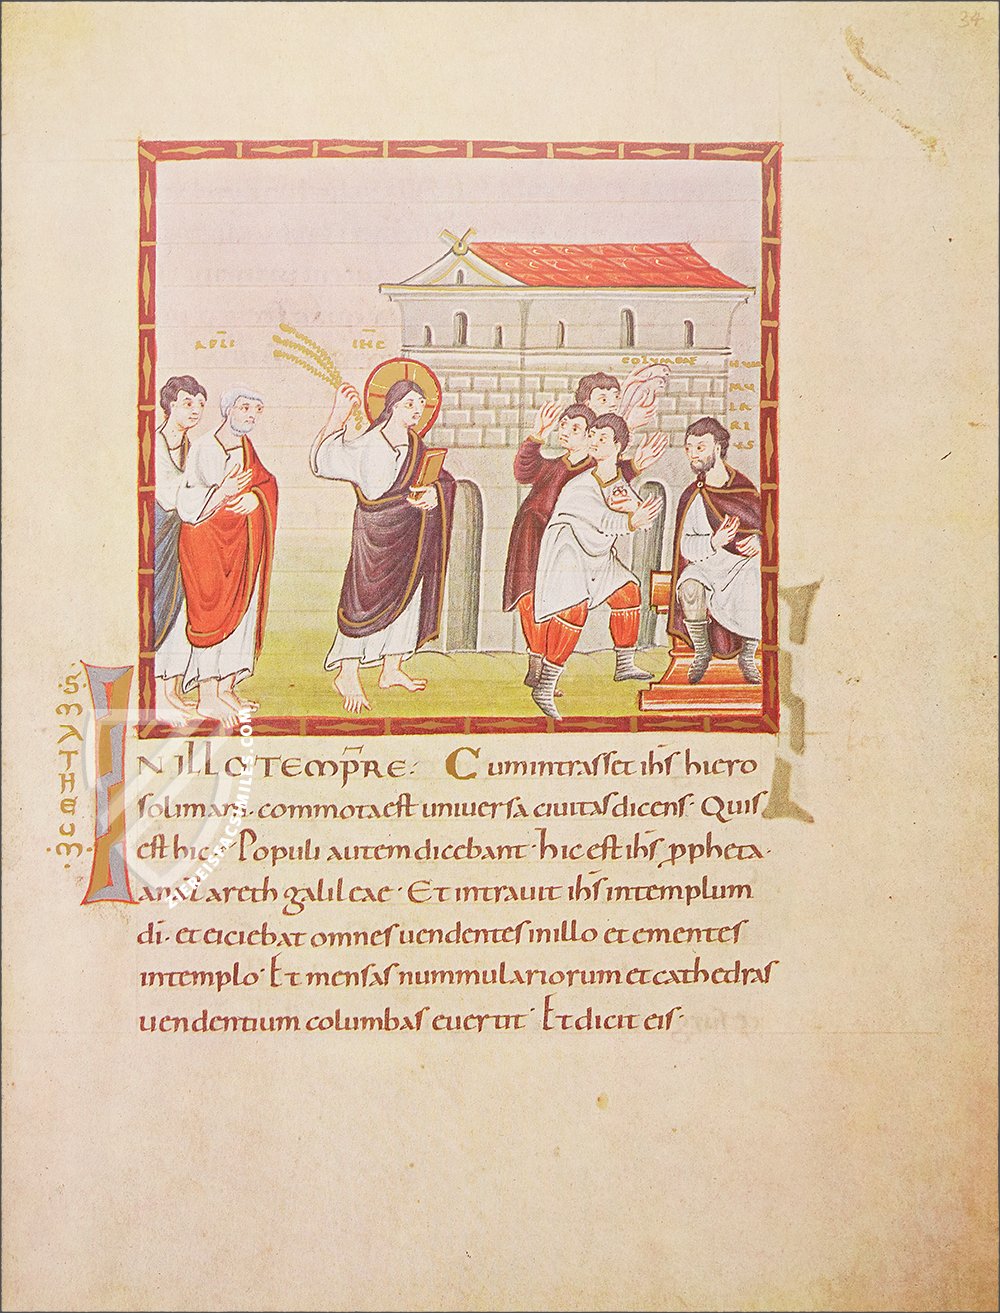 34
APLI
IHC
COLUMBAE
NUM
MU
LA
RI
US
S MATHEUM
IN ILLO TEMPRE. Cumintrasset ihs hiero
solimam. commota est uniuersa ciuitas dicens. Quis
est hic. Populi autem dicebant. hic est ihs ppheta.
anazareth galileae. Et intrauit ihs intemplum
di. et eiciebat omnes uendentes inillo et ementes
intemplo. Et mensas nummulariorum et cathedras
uendentium columbas euertit. Et dicit eis.
ZIEREISFACSIMILES.COM